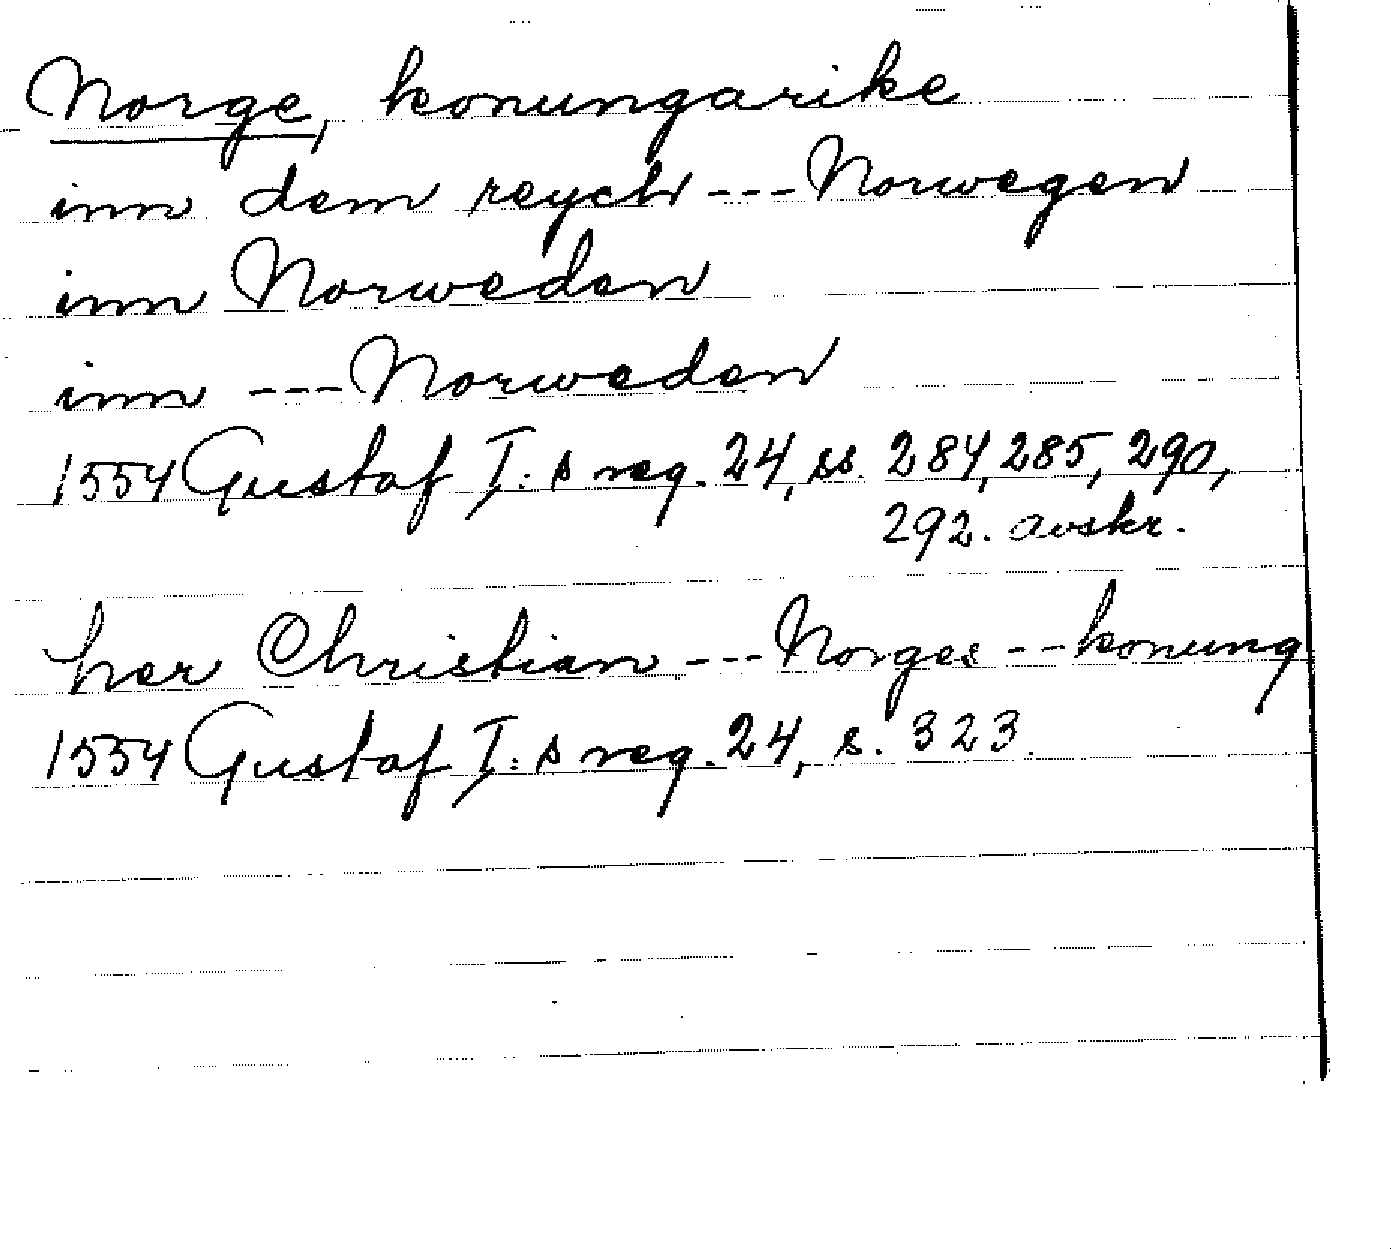 Norge, konungarike
inn dem reych --- Norwegen
inn Norweden
inn --- Norweden
1554 Gustaf I:s reg. 24, ss. 284, 285, 290,
292. avskr.
her Christian --- Norges -- konung
1554 Gustaf I:s reg. 24, s. 323.